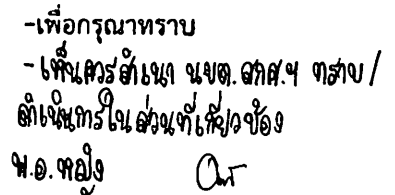 -เพื่อกรุณาทราบ
-เห็นควรสำเนา นขต.สกศ.ฯ ทราบ/
ดำเนินการในส่วนที่เกี่ยวข้อง
พ.อ.หญิง